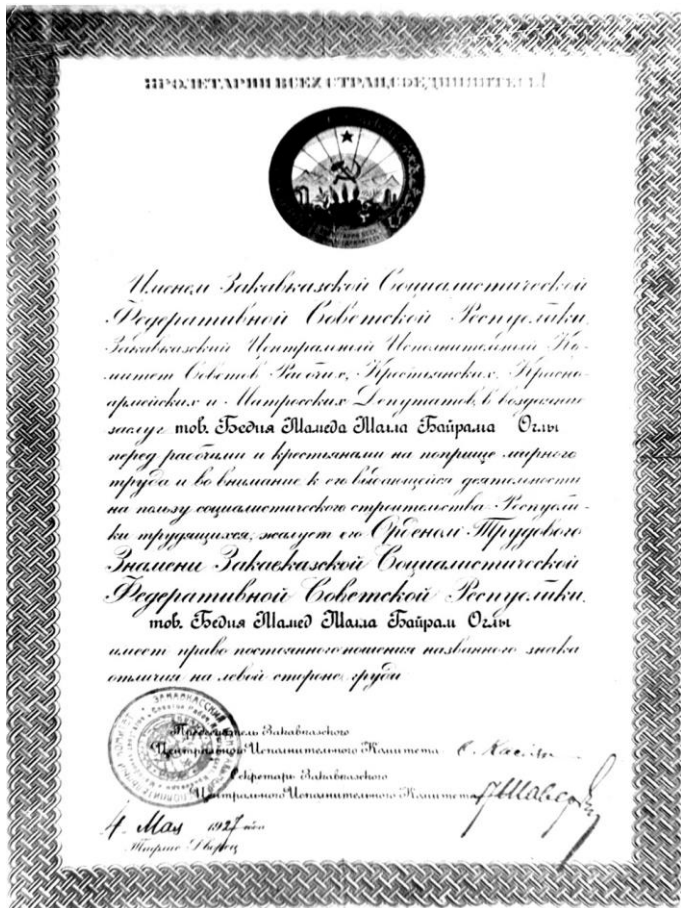 ПРОЛЕТАРИИ ВСЕХ СТРАН, СОЕДИНЯЙТЕСЬ!
Именем Закавказской Социалистической
Федеративной Советской Республики,
Закавказский Центральный Исполнительный Ко-
митет Советов Рабочих, Крестьянских, Красно-
армейских и Матросских Депутатов, в воздаяние
заслуг тов. Бедия Мамеда Маила Байрама Оглы
перед рабочими и крестьянами на поприще мирного
труда и во внимание к его выдающейся деятельности
на пользу социалистического строительства Республи-
ки трудящихся, жалует его Орденом Трудового
Знамени Закавказской Социалистической
Федеративной Советской Республики.
тов. Бедия Мамед Маила Байрам Оглы
имеет право постоянного ношения названного знака
отличия на левой стороне груди
Председатель Закавказского
Центрального Исполнительного Комитета
Секретарь Закавказского
Центрального Исполнительного Комитета
4 Мая 1927 года
Дворец